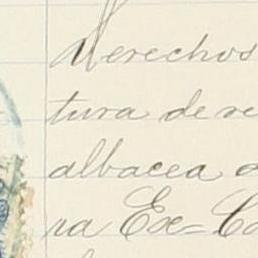 Derechos
tura de re
albacea
ra Ex-Co